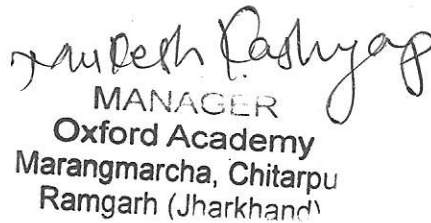 Kashyap
MANAGER
Oxford Academy
Marangmarcha, Chitarpu
Ramgarh (Jharkhand)